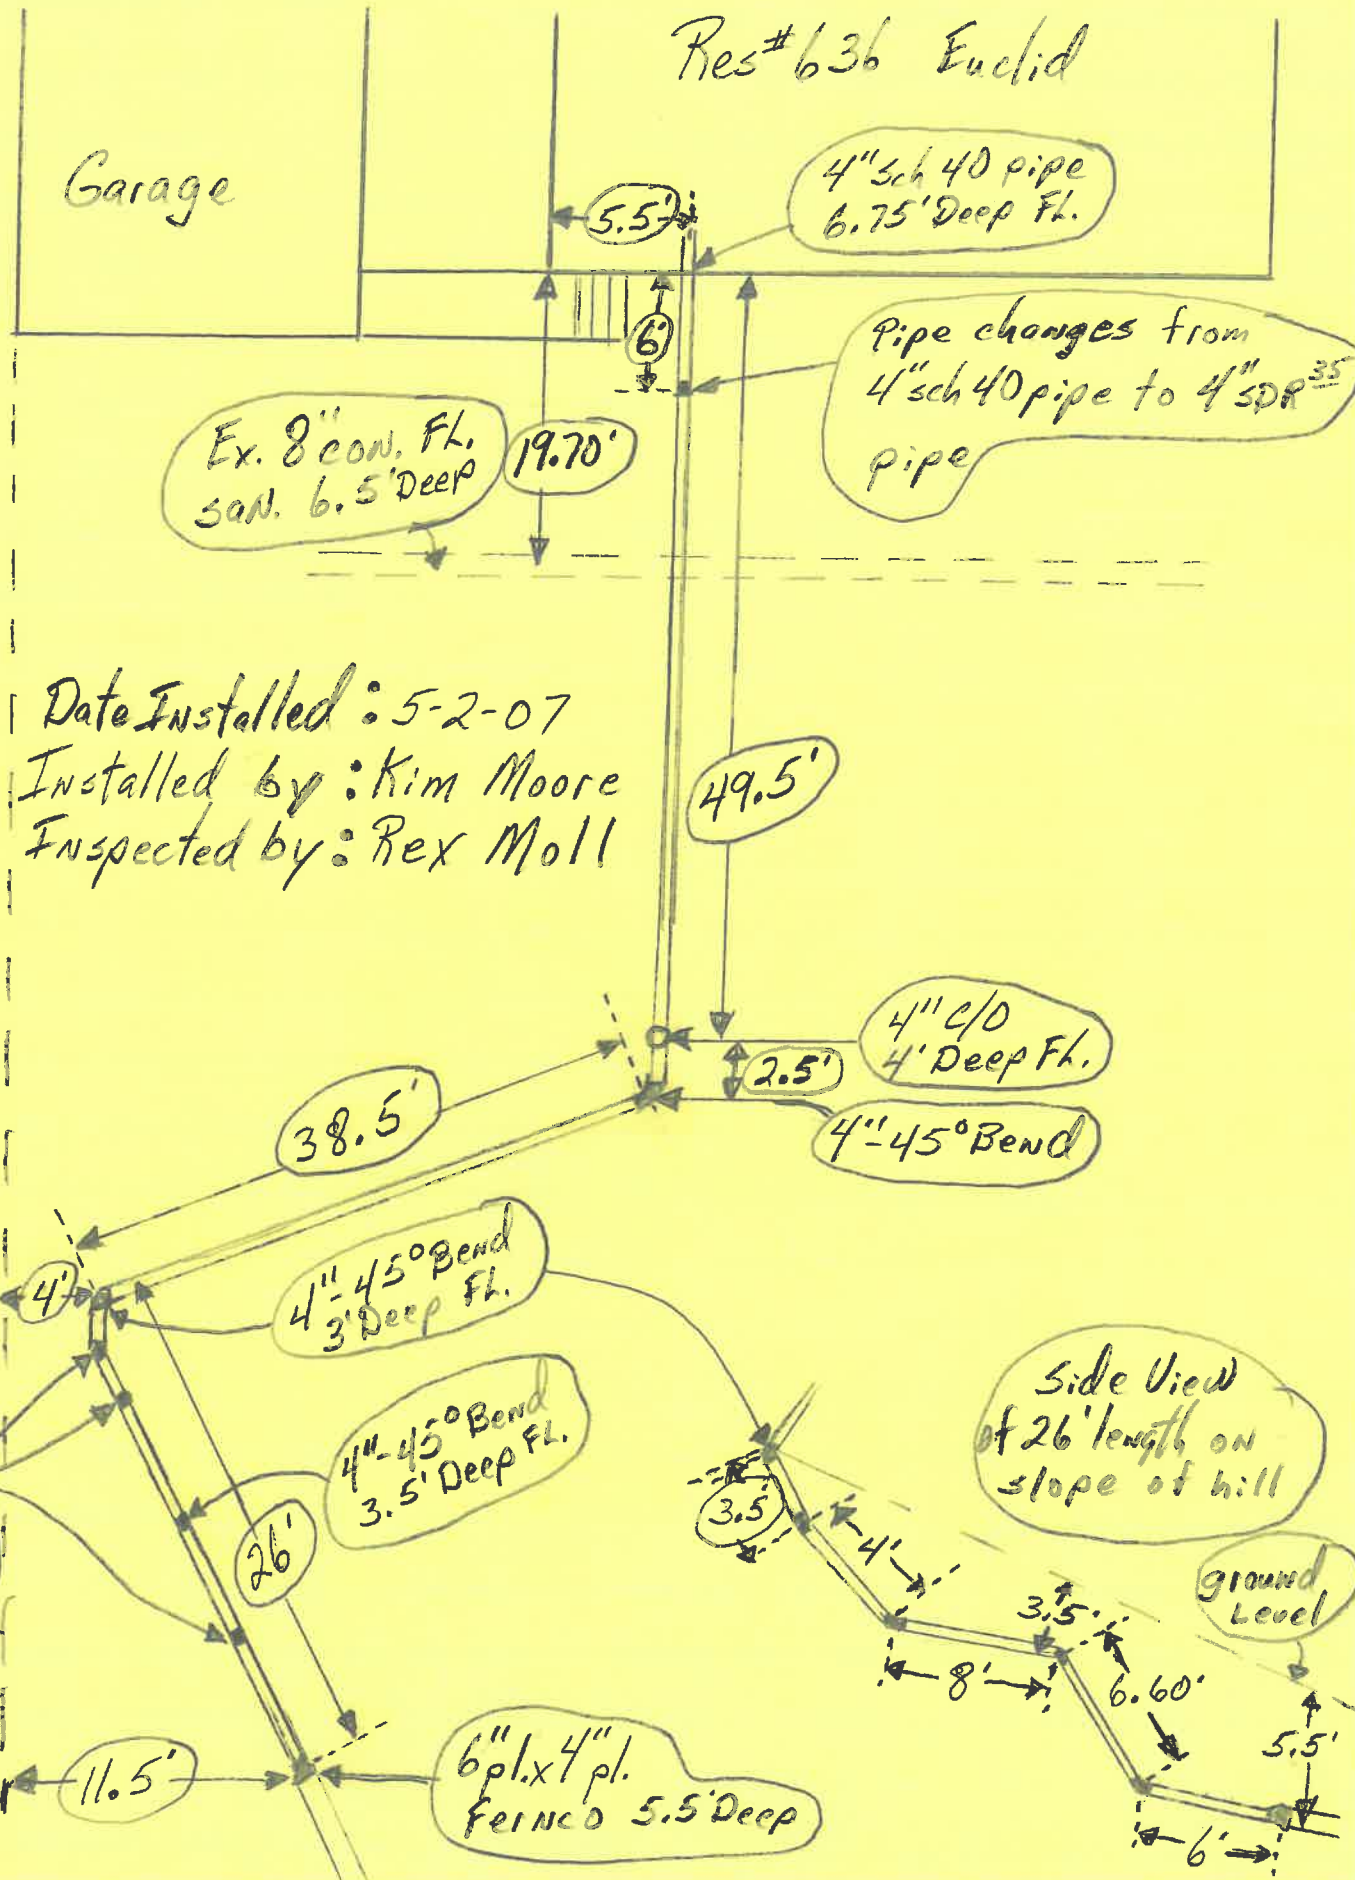 Res# 636 Euclid
Garage
4" sch 40 pipe
6.75' Deep FL.
5.5'
6'
Pipe changes from
4" sch 40 pipe to 4" SDR 35
pipe
Ex. 8" con. FL.
san. 6.5' Deep
19.70'
Date Installed : 5-2-07
Installed by : Kim Moore
Inspected by : Rex Moll
49.5'
4" C/O
4' Deep FL.
2.5'
4"-45° Bend
38.5'
4'
4"-45° Bend
3' Deep FL.
4"-45° Bend
3.5' Deep FL.
26'
Side View
of 26' length on
slope of hill
3.5'
4'
8'
3.5'
6.60'
ground
Level
5.5'
6'
11.5'
6" pl. x 4" pl.
Fernco 5.5' Deep